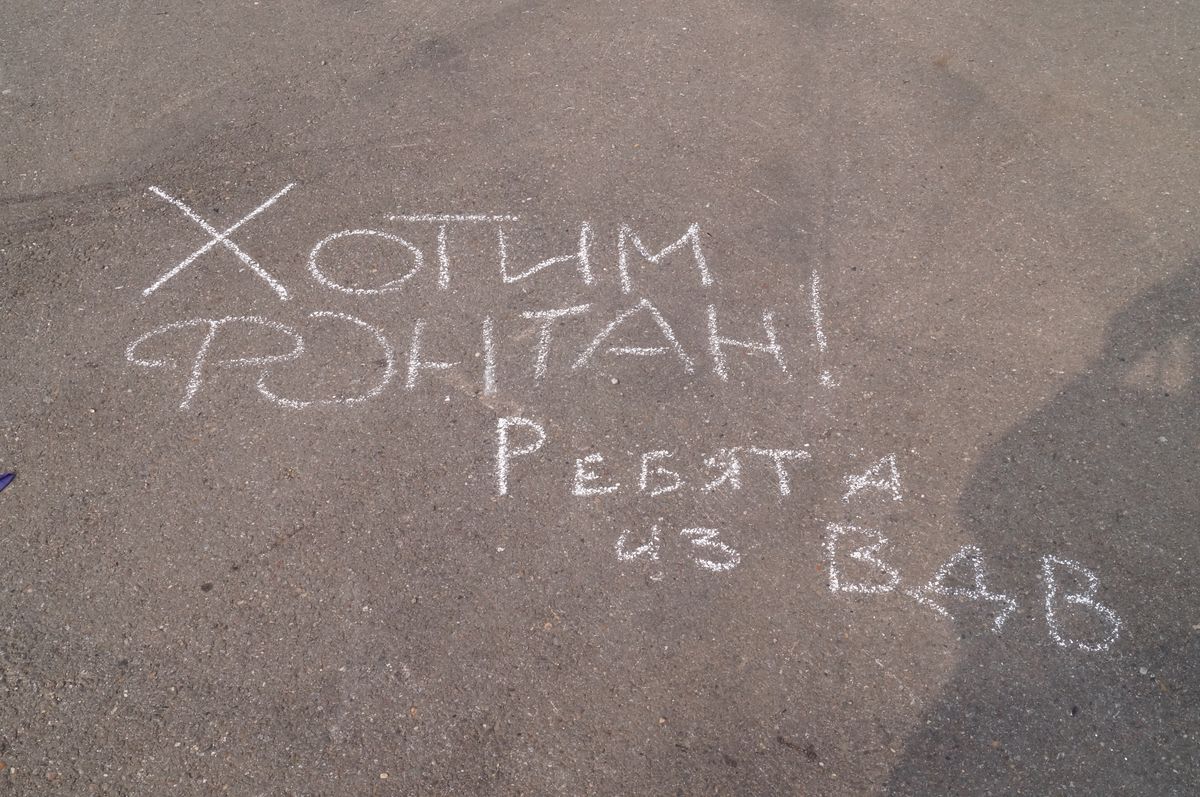 Хотим
Фонтан!
Ребята
из ВДВ